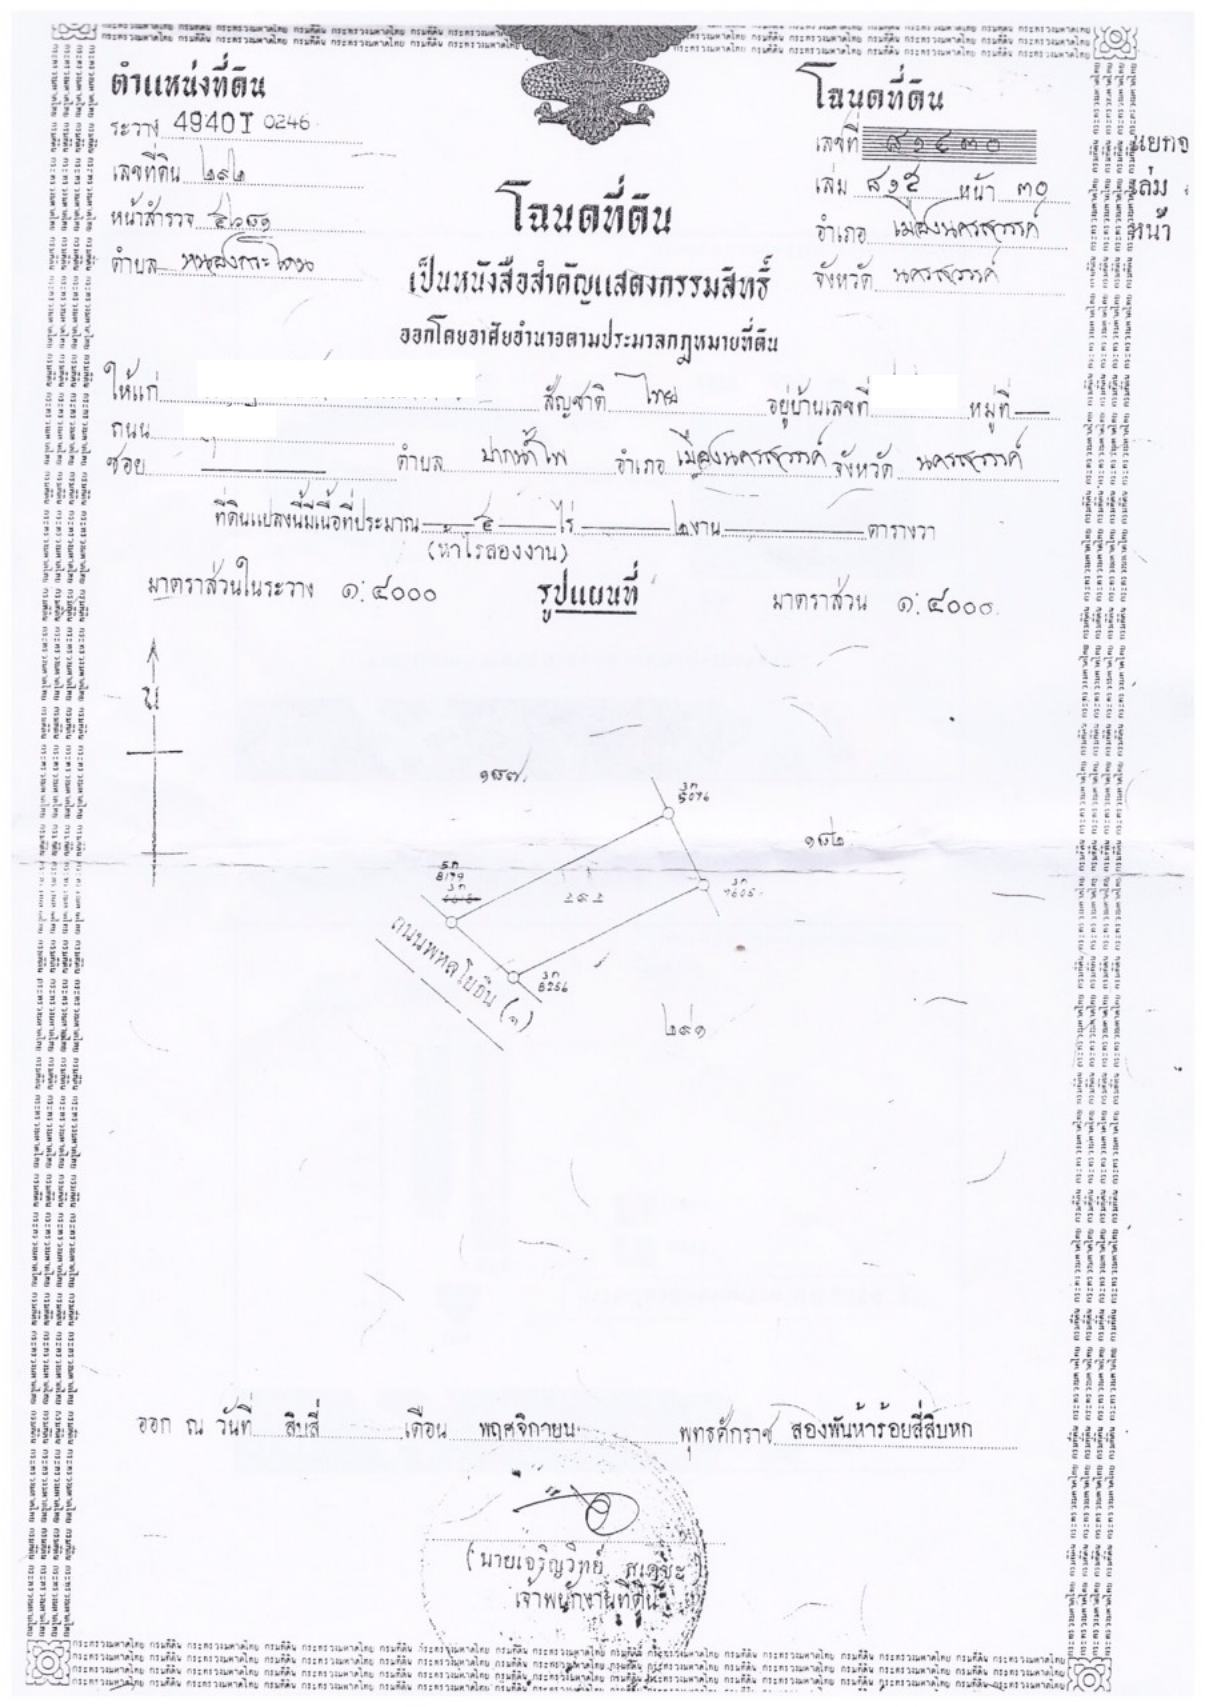 ตำแหน่งที่ดิน
ระวาง 4940I 0246
เลขที่ดิน ๒๙๒
หน้าสำรวจ
ตำบล หนองกระโดน
โฉนดที่ดิน
เลขที่ ๘๑๔๓๐
เล่ม ๘๑๕ หน้า ๓๐
อำเภอ เมืองนครสวรรค์
จังหวัด นครสวรรค์
เล่ม
หน้า
โฉนดที่ดิน
เป็นหนังสือสำคัญแสดงกรรมสิทธิ์
ออกโดยอาศัยอำนาจตามประมวลกฎหมายที่ดิน
ให้แก่ สัญชาติ ไทย อยู่บ้านเลขที่ หมู่ที่ —
ถนน
ซอย — ตำบล ปากน้ำโพ อำเภอ เมืองนครสวรรค์ จังหวัด นครสวรรค์
ที่ดินแปลงนี้มีเนื้อที่ประมาณ ๕ ไร่ ๒ งาน — ตารางวา
(ห้าไร่สองงาน)
มาตราส่วนในระวาง ๑:๔๐๐๐ รูปแผนที่ มาตราส่วน ๑:๔๐๐๐
น
๑๘๗
๑๘๒
8179
๒๙๒
ถนนพหลโยธิน (๑)
8256
๒๙๑
ออก ณ วันที่ สิบสี่ เดือน พฤศจิกายน พุทธศักราช สองพันห้าร้อยสี่สิบหก
(นายเจริญวิทย์
เจ้าพนักงานที่ดิน
กระทรวงมหาดไทย กรมที่ดิน